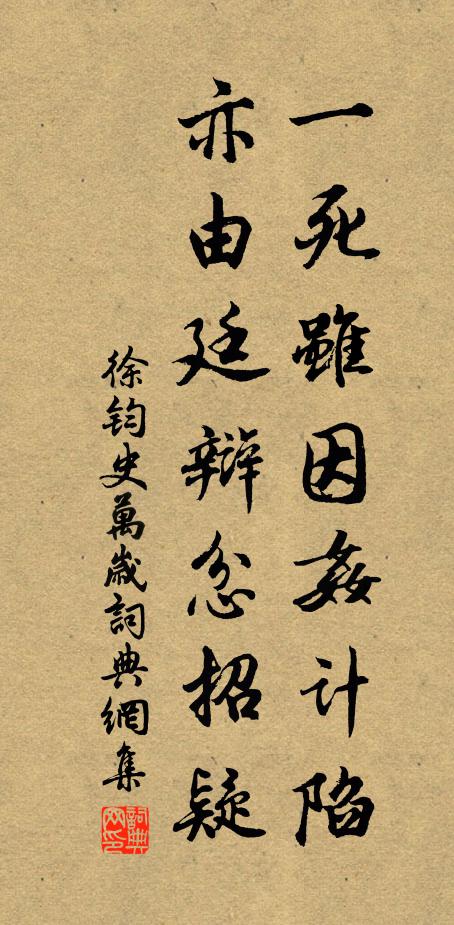 一死雖因姦計陷
亦由廷辯忿招疑
徐鈞史萬歲詞典網集
詞典網印